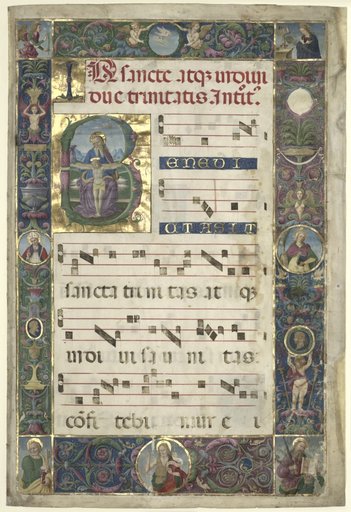 IN sancte atqꝫ indiui
due trinitatis Introitꝰ.
B ENEDI
CTA SIT
sancta tri ni tas at qꝫ
indi ui sa u ni tas:
cōfi tebi mur e i